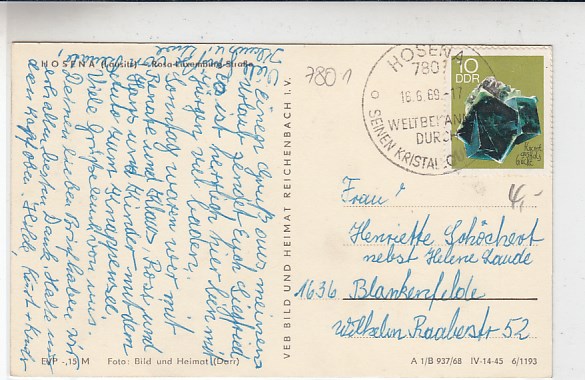 HOSENA (Lausitz) - Rosa-Luxemburg-Straße
Viel einen Gruß aus meinem
Urlaub sendet Euch Siegfried
Es ist herrlich hier bin mit
viel baden.
Sonntag waren wir mit
Renate und Klaus, Rosi und
Hans und Kinder mit dem
Auto zum Knappensee.
Viele Grüße und von uns.
Deinen lieben Brief haben wir
erhalten, besten Dank. Habe nur
den Kopf
Hilde, Kurt + Kinder
EVP -,15 M Foto: Bild und Heimat (Darr)
VEB BILD UND HEIMAT REICHENBACH I. V.
7801
HOSENA
7801
16.6.69-17
WELTBEKANN
DURCH
SEINEN KRISTALLQU
10
DDR
4,-
Frau
Henriette Schöchert
nebst Helene Laude
1636 Blankenfelde
Wilhelm Raabestr 52
A 1/B 937/68 IV-14-45 6/1193